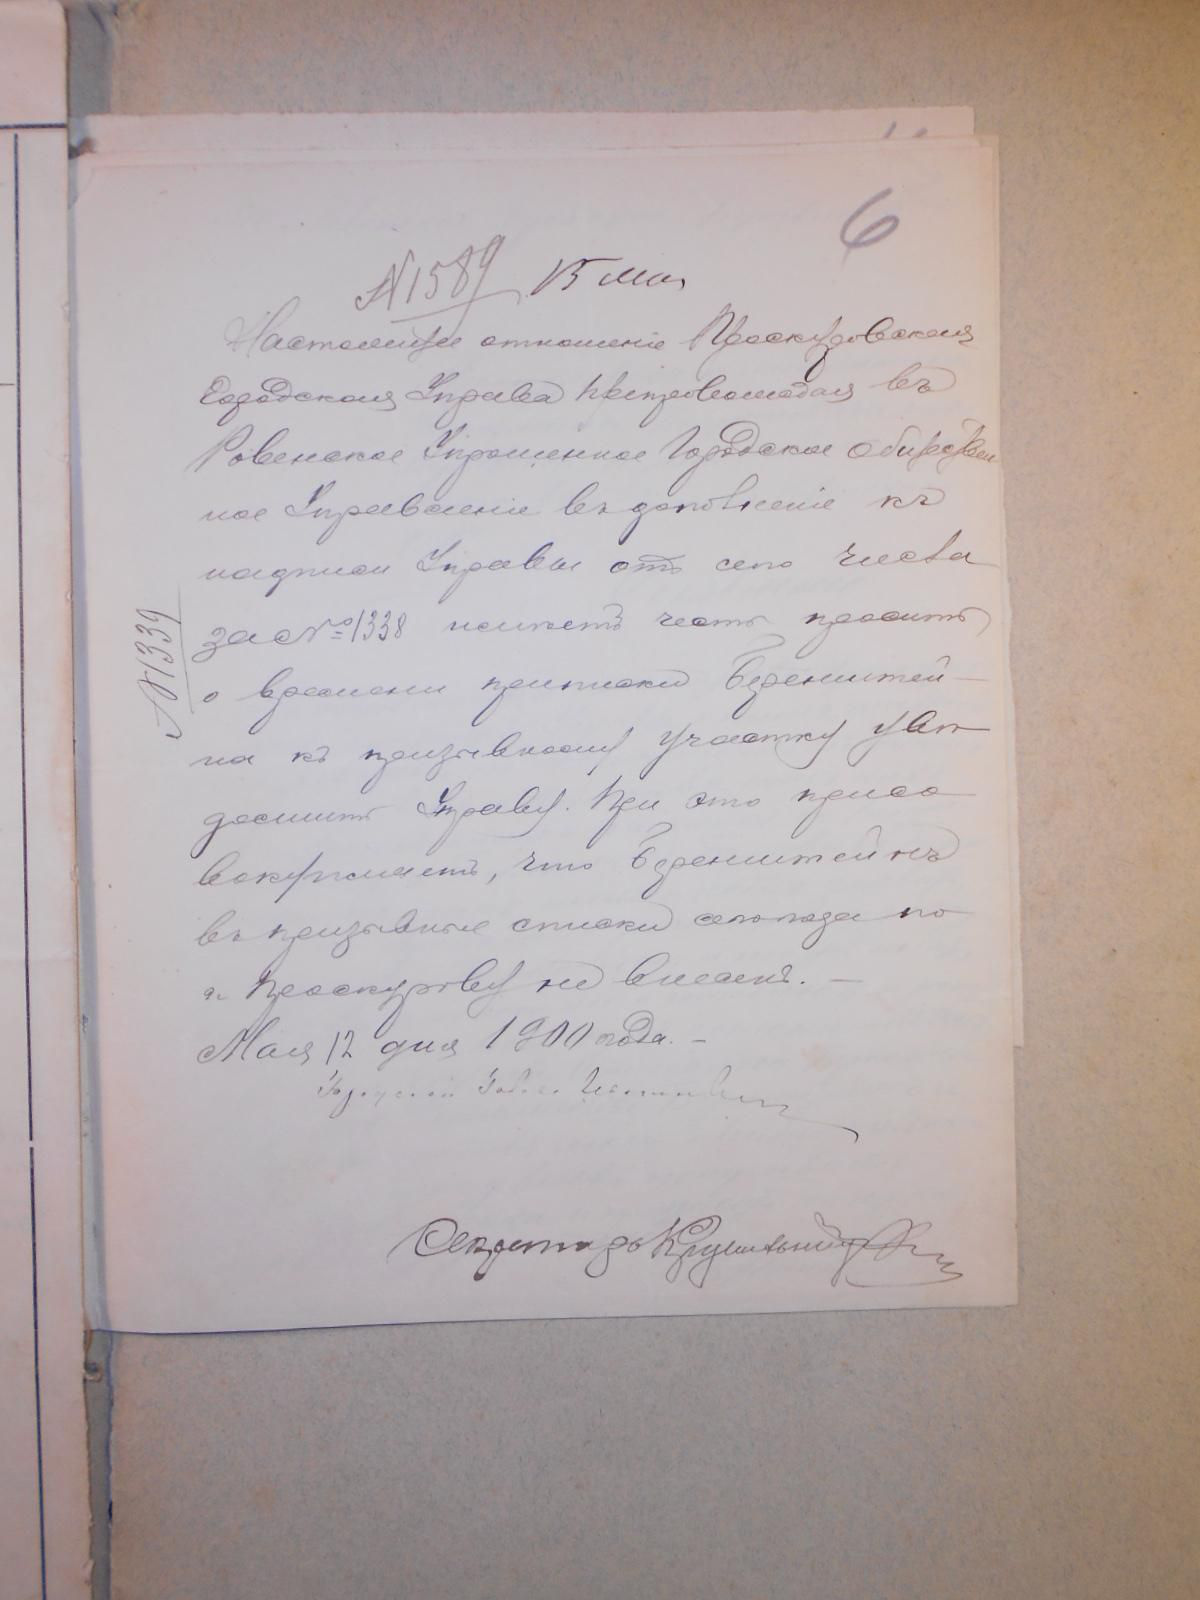 6
№ 1589 15 мая
Настоящее отношеніе Проскуровская
Городская Управа препровождая въ
Ровенское Упрощенное Городское Обществен
ное Управленіе въ дополненіе къ
надписи Управы отъ сего числа
за № 1338 имѣетъ честь просить
о времени приписки Беренштей-
на къ призывному участку уве
домить Управу. При этомъ присо
вокупляетъ, что Беренштейнъ
въ призывные списки сего года по
г. Проскурову не внесенъ. —
Мая 12 дня 1900 года. —
№ 1339
Городской Голова
Секретарь